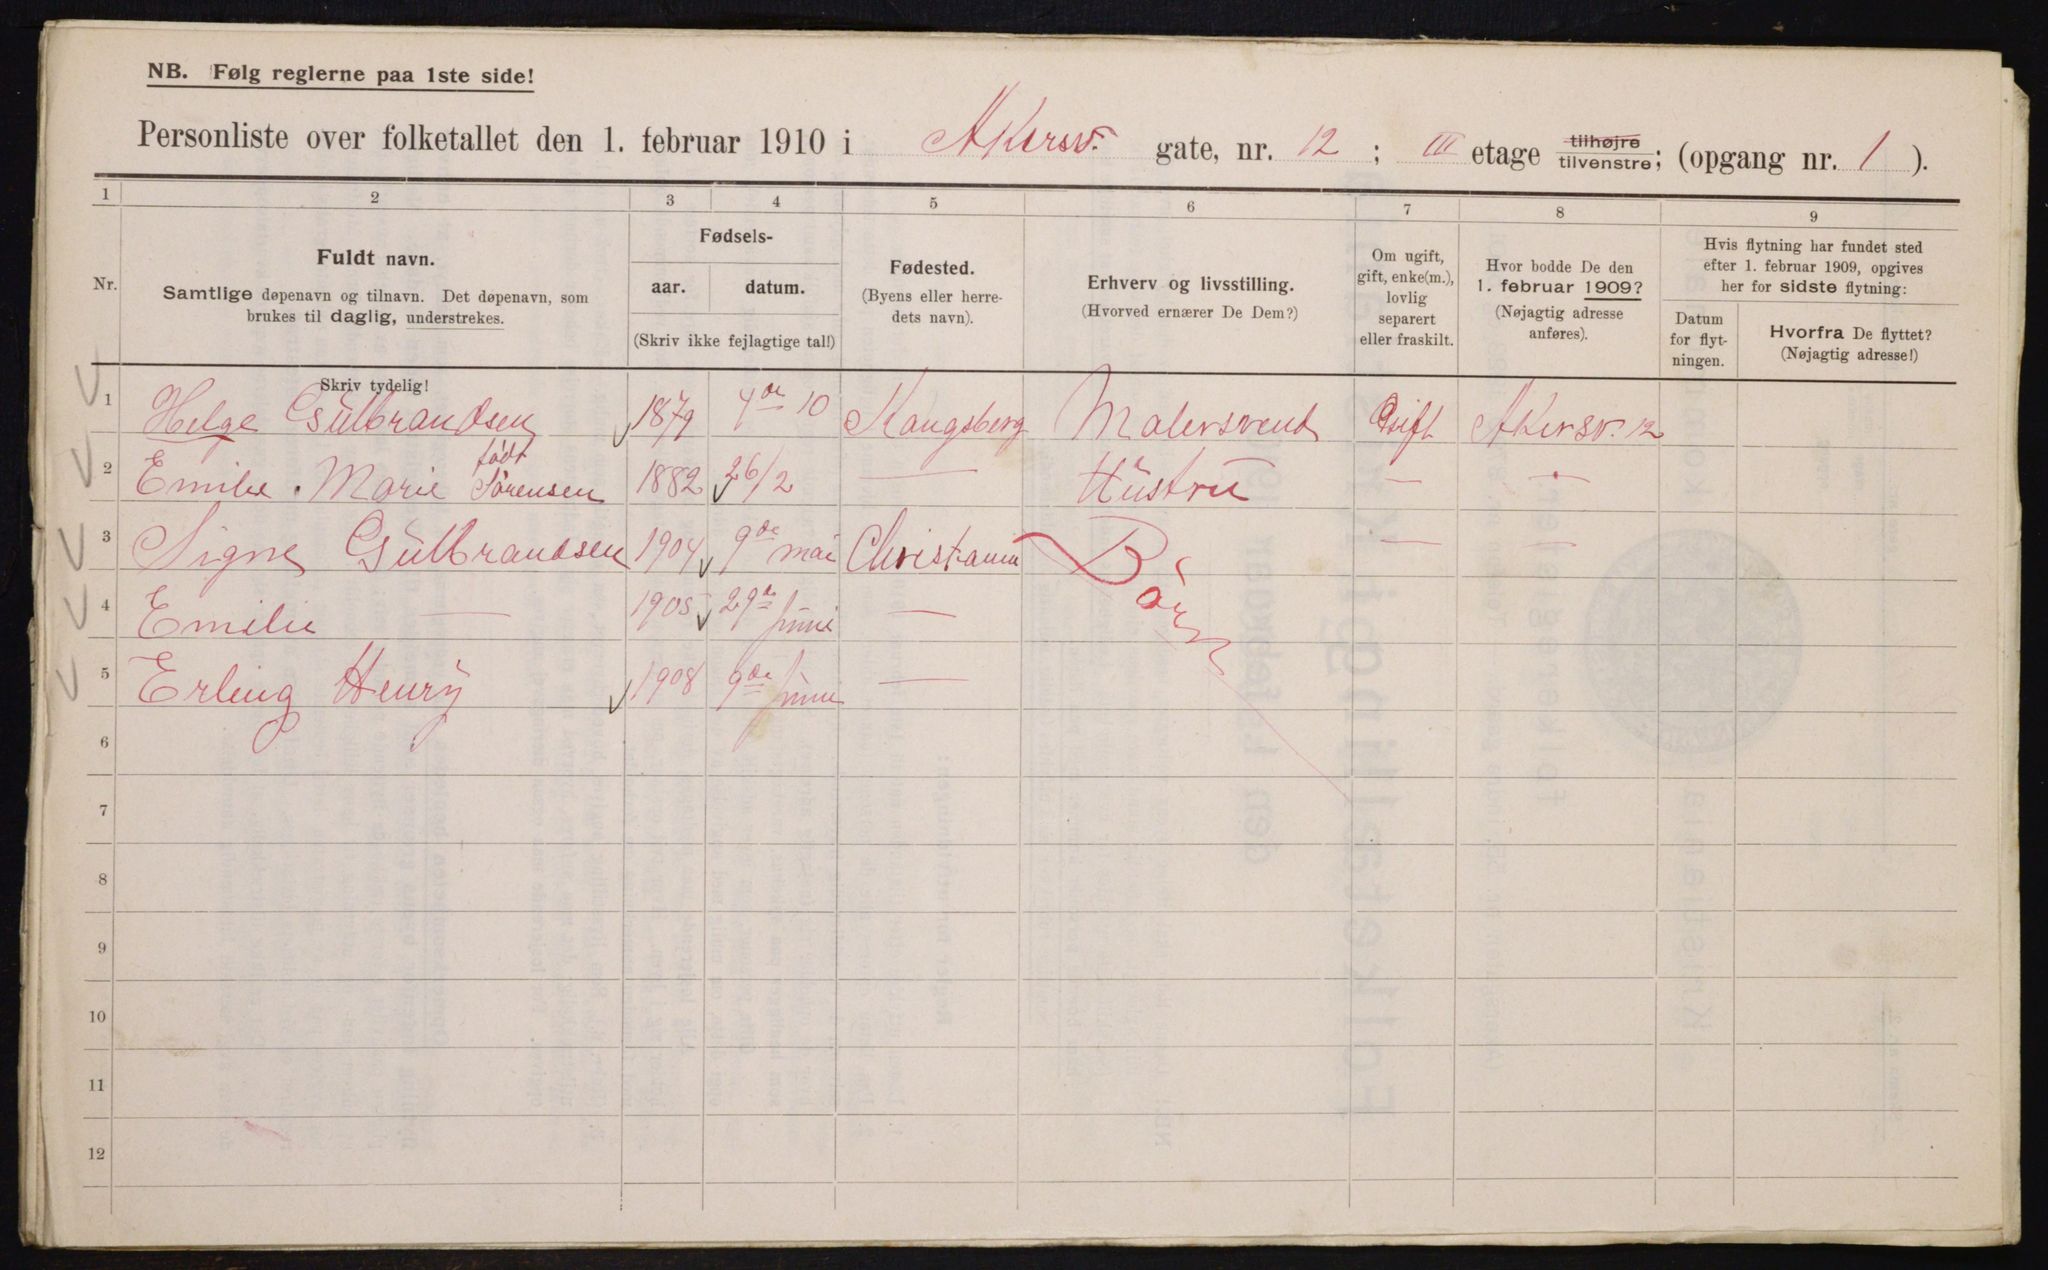 NB. Følg reglerne paa 1ste side!
Personliste over folketallet den 1. februar 1910 i Akersv. gate, nr. 12 ; III etage tilhøjre tilvenstre; (opgang nr. 1 ).
1 2 3 4 5 6 7 8 9
Nr.
Fuldt navn.
Samtlige døpenavn og tilnavn. Det døpenavn, som
brukes til daglig, understrekes.
Skriv tydelig!
Fødsels-
aar. datum.
(Skriv ikke fejlagtige tal!)
Fødested.
(Byens eller herre-
dets navn).
Erhverv og livsstilling.
(Hvorved ernærer De Dem?)
Om ugift,
gift, enke(m.),
lovlig
separert
eller fraskilt.
Hvor bodde De den
1. februar 1909?
(Nøjagtig adresse
anføres).
Hvis flytning har fundet sted
efter 1. februar 1909, opgives
her for sidste flytning:
Datum
for flyt-
ningen.
Hvorfra De flyttet?
(Nøjagtig adresse!)
1 Helge Gulbrandsen 1879 4de 10 Kongsberg Malersvend Gift Akersv. 12
2 Emilie Marie født Sørensen 1882 26/2 — Hustru — —
3 Signe Gulbrandsen 1904 9de mai Christiania Börn — —
4 Emilie — 1905 29de juni —
5 Erling Henry 1908 9de juni —
6
7
8
9
10
11
12